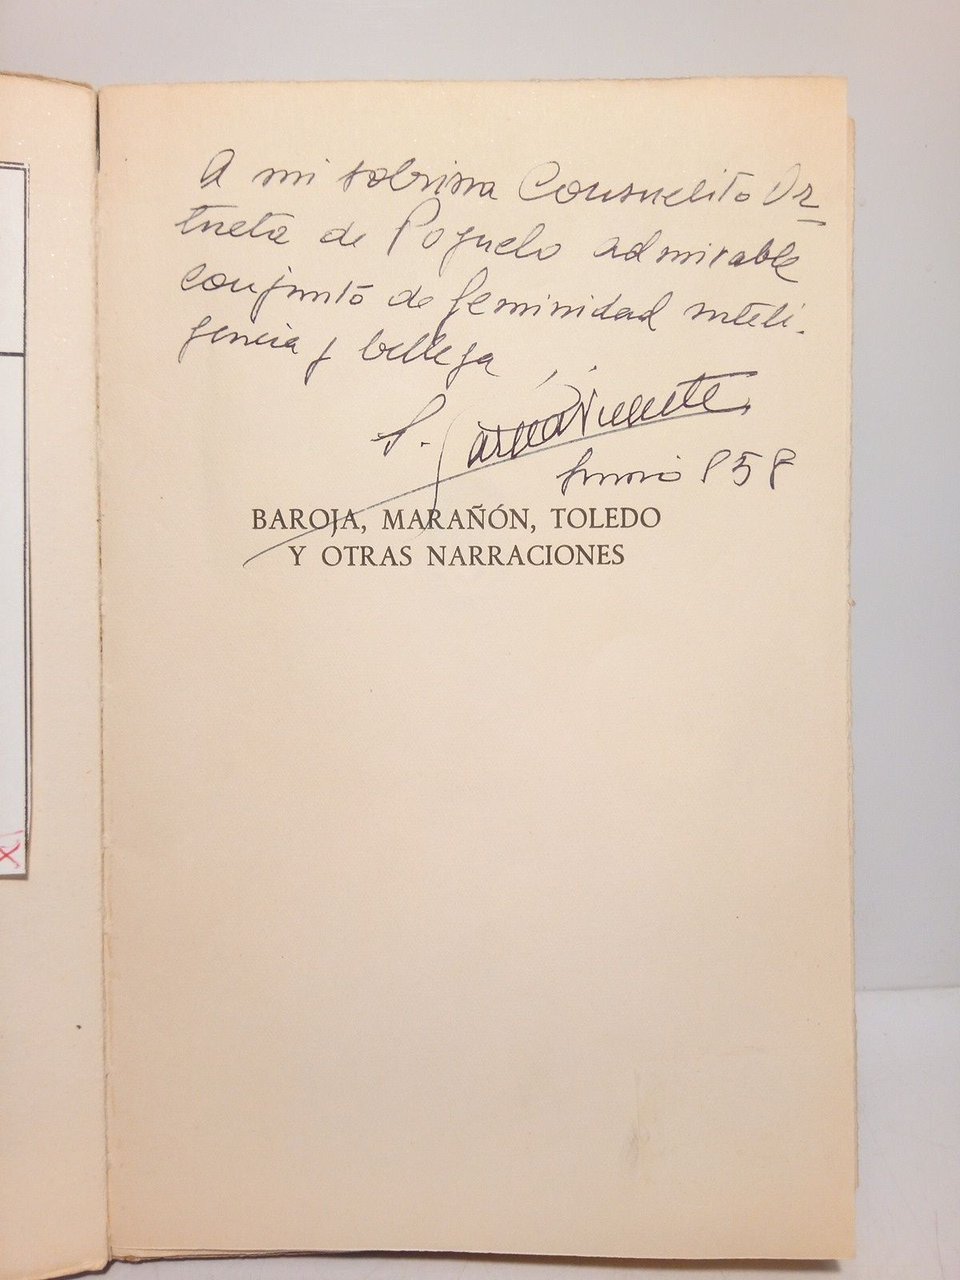 A mi sobrina Consuelito Or-
tueta de Pozuelo admirable
conjunto de feminidad inteli-
gencia y belleza
S. García Vicente
Junio 958
BAROJA, MARAÑÓN, TOLEDO
Y OTRAS NARRACIONES
X